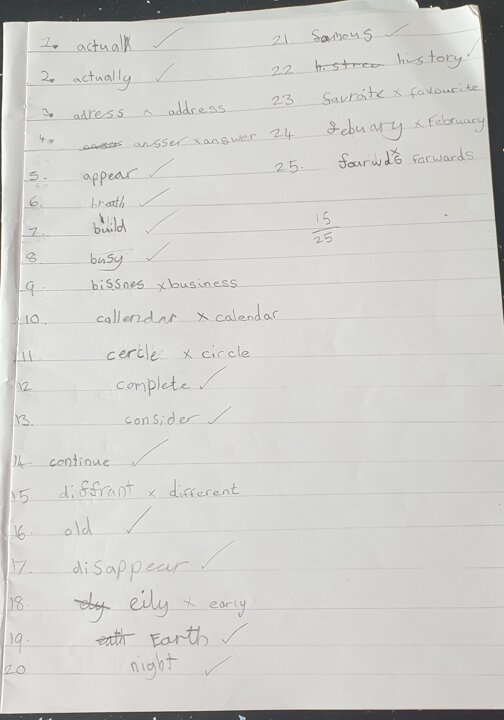 1. actual ✓
2. actually ✓
3. adress x address
4. ansser x answer
5. appear ✓
6. breath ✓
7. build ✓
8 busy ✓
9 bissnes x business
10 callendar x calendar
11. cercle x circle
12 complete ✓
13. consider ✓
14. continue ✓
15 diffrant x different
16 old ✓
17. disappear ✓
18. eily x early
19. Earth ✓
20 night ✓
21 famous ✓
22 history ✓
23 favraite x favourite
24 febuary x February
25. fourwds x forwards
15
25